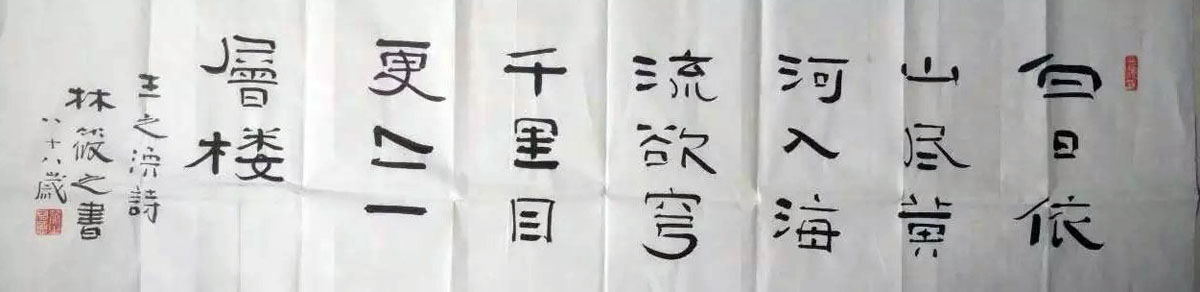 白日依
山尽黄
河入海
流欲穷
千里目
更上一
层楼
王之涣詩
林筱之書
八十八歲